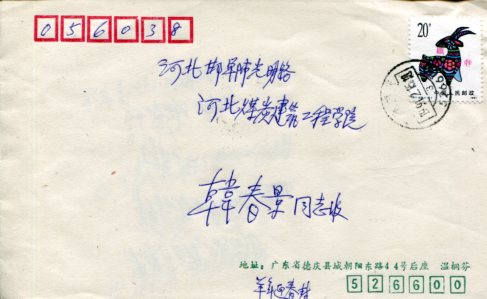 056038
20分
中国人民邮政
河北邯郸市光明路
河北煤炭建筑工程学院
韩春景同志收
地址：广东省德庆县城朝阳东路44号后座 温桐芬
526600